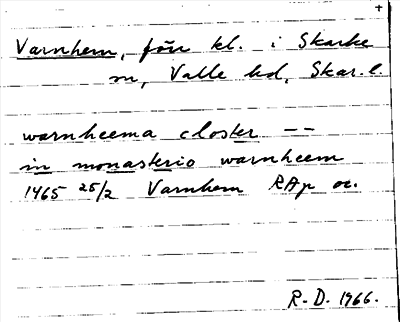 +
Varnhem, förr kl. i Skarke
sn, Valle hd, Skar. l.
warnheema closter --
in monasterio warnheem
1465 25/2 Varnhem RAp or.
R. D. 1966.